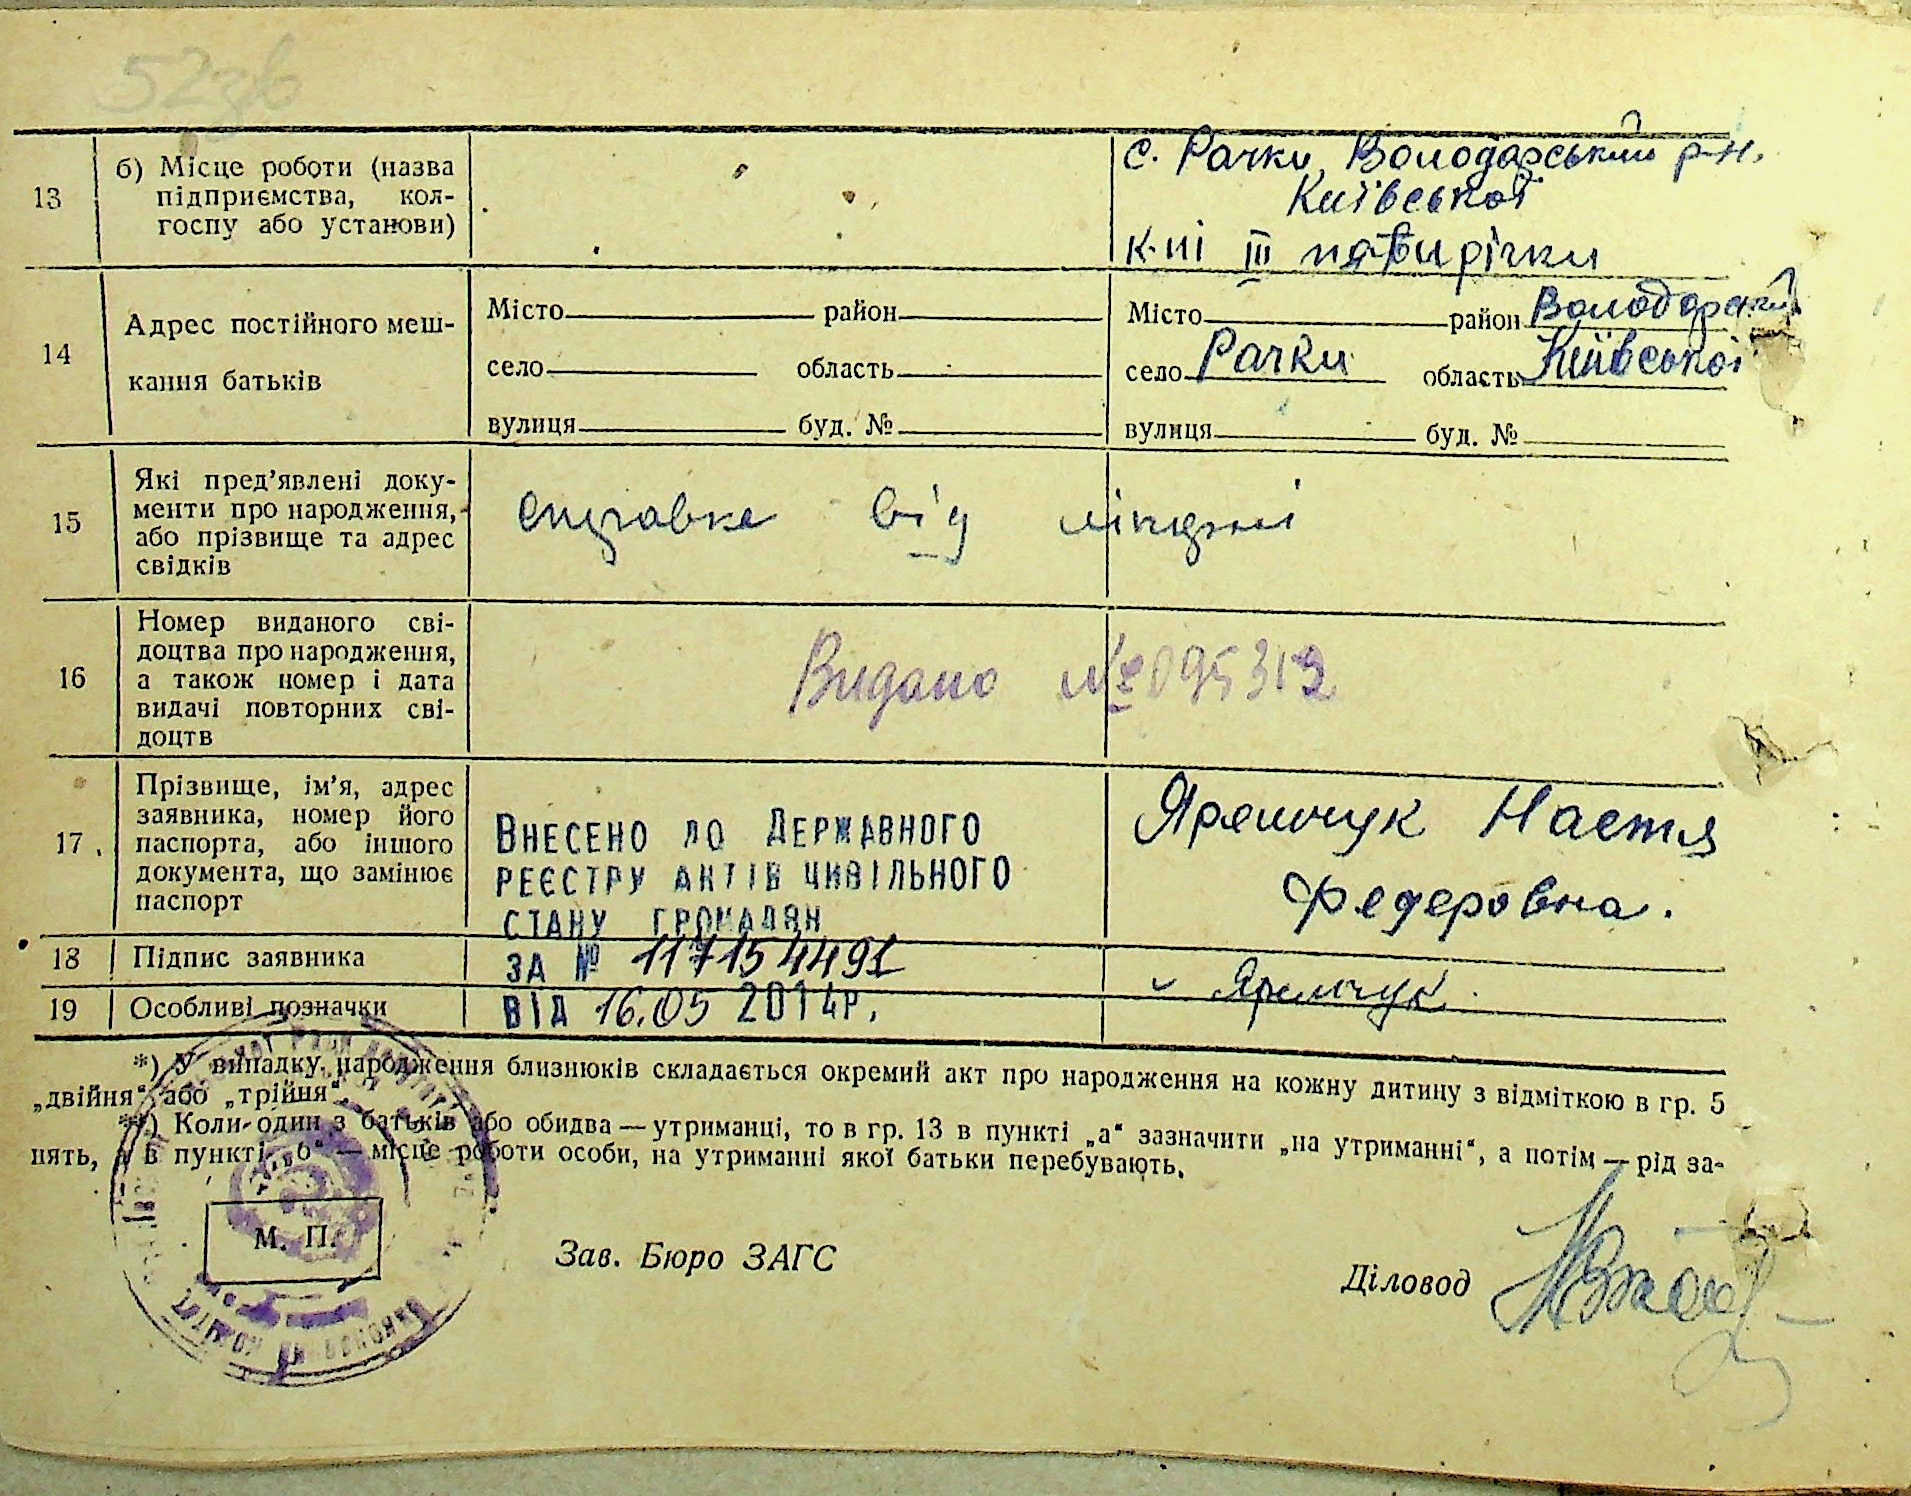 52зв
13
б) Місце роботи (назва
підприємства, кол-
госпу або установи)
с. Рачки, Володарський р-н,
Київської
к-пі III пятирічки
14
Адрес постійного меш-
кання батьків
Місто район
село область
вулиця буд. №
Місто район Володарський
село Рачки область Київської
вулиця буд. №
15
Які пред'явлені доку-
менти про народження,
або прізвище та адрес
свідків
справка від
16
Номер виданого сві-
доцтва про народження,
а також номер і дата
видачі повторних сві-
доцтв
Видано № 095312
17
Прізвище, ім'я, адрес
заявника, номер його
паспорта, або іншого
документа, що замінює
паспорт
ВНЕСЕНО ДО ДЕРЖАВНОГО
РЕЄСТРУ АКТІВ ЦИВІЛЬНОГО
СТАНУ ГРОМАДЯН
ЗА № 117154491
ВІД 16.05 2014р.
Яремчук Настя
Федеровна.
18
Підпис заявника
Яремчук
19
Особливі позначки
*) У випадку народження близнюків складається окремий акт про народження на кожну дитину з відміткою в гр. 5
„двійня“ або „трійня“.
**) Коли один з батьків або обидва — утриманці, то в гр. 13 в пункті „а“ зазначити „на утриманні“, а потім — рід за-
нять, а в пункті „б“ — місце роботи особи, на утриманні якої батьки перебувають.
М. П.
Зав. Бюро ЗАГС
Діловод